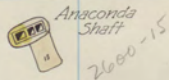 Anaconda
Shaft
2600-15